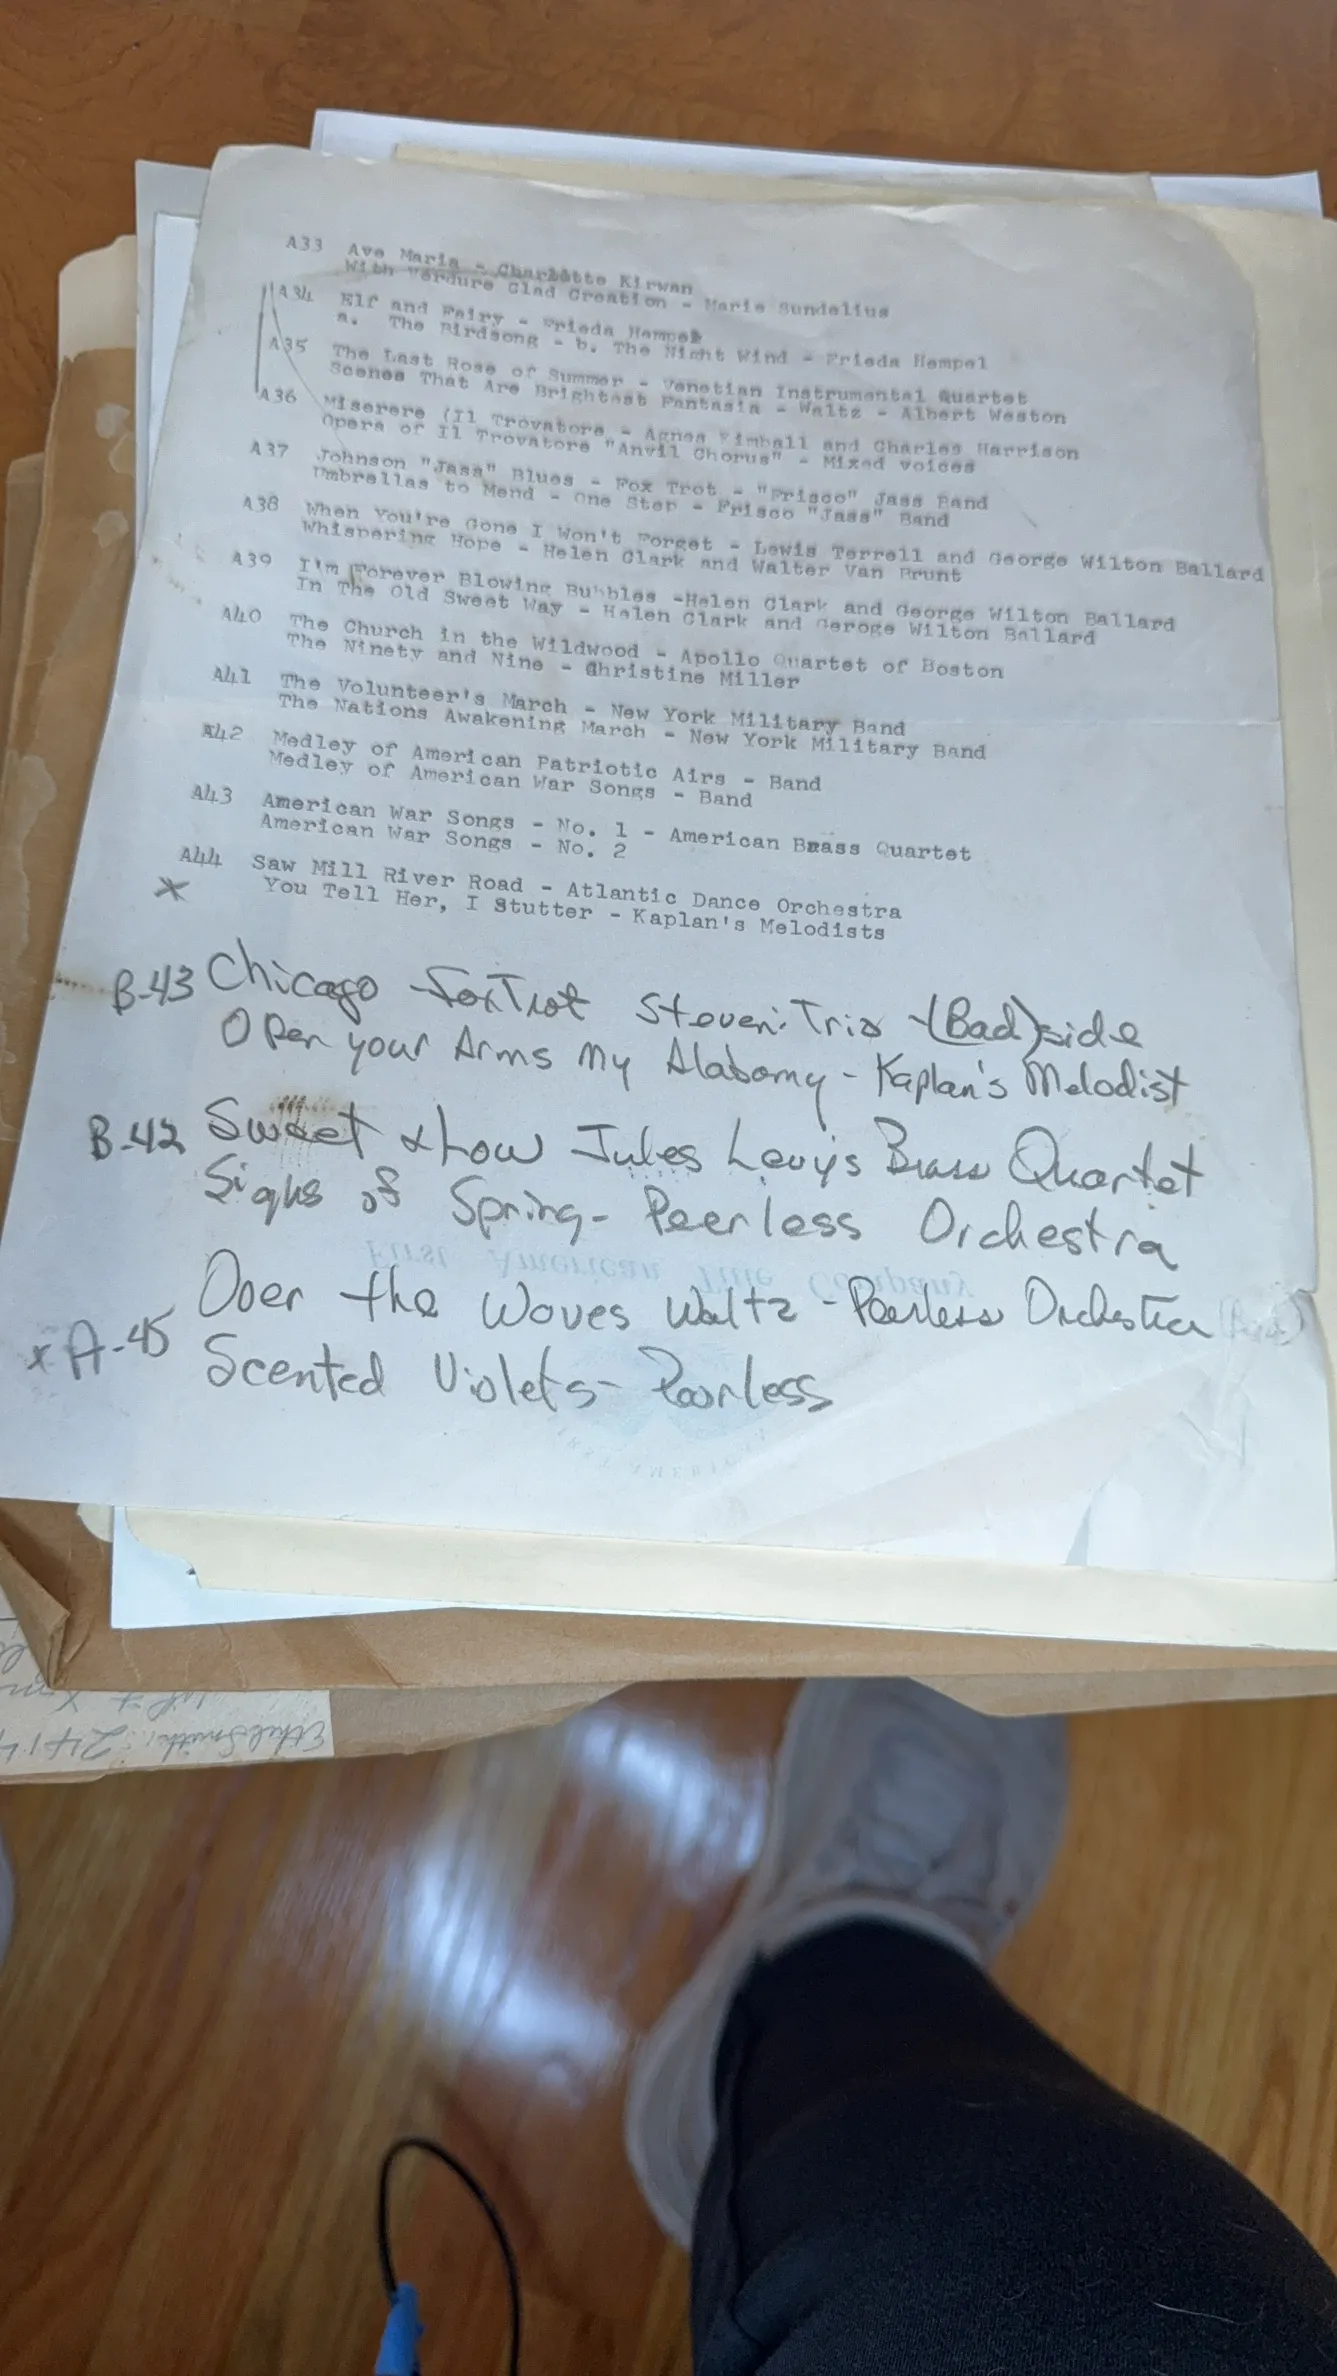 A33 Ave Maria - Charlotte Kirwan
With Verdure Clad Creation - Marie Sundelius
A34 Elf and Fairy - Frieda Hempel
a. The Birdsong - b. The Night Wind - Frieda Hempel
A35 The Last Rose of Summer - Venetian Instrumental Quartet
Scenes That Are Brightest Fantasia - Waltz - Albert Weston
A36 Miserere (Il Trovatore - Agnes Kimball and Charles Harrison
Opera of Il Trovatore "Anvil Chorus" - Mixed voices
A37 Johnson "Jass" Blues - Fox Trot - "Frisco" Jass Band
Umbrellas to Mend - One Step - Frisco "Jass" Band
A38 When You're Gone I Won't Forget - Lewis Terrell and George Wilton Ballard
Whispering Hope - Helen Clark and Walter Van Brunt
A39 I'm Forever Blowing Bubbles -Helen Clark and George Wilton Ballard
In The Old Sweet Way - Helen Clark and Geroge Wilton Ballard
A40 The Church in the Wildwood - Apollo Quartet of Boston
The Ninety and Nine - Christine Miller
A41 The Volunteer's March - New York Military Band
The Nations Awakening March - New York Military Band
A42 Medley of American Patriotic Airs - Band
Medley of American War Songs - Band
A43 American War Songs - No. 1 - American Brass Quartet
American War Songs - No. 2
A44 Saw Mill River Road - Atlantic Dance Orchestra
X You Tell Her, I Stutter - Kaplan's Melodists
B-43 Chicago - FoxTrot Steven: Trio - (Bad) side
Open your Arms My Alabamy - Kaplan's Melodist
B-42 Sweet & Low Jules Levy's Brass Quartet
Sighs of Spring - Peerless Orchestra
Over the Waves Waltz - Peerless Orchestra
x A-45 Scented Violets - Peerless
First American Title Company
Ethel Smith: 2414